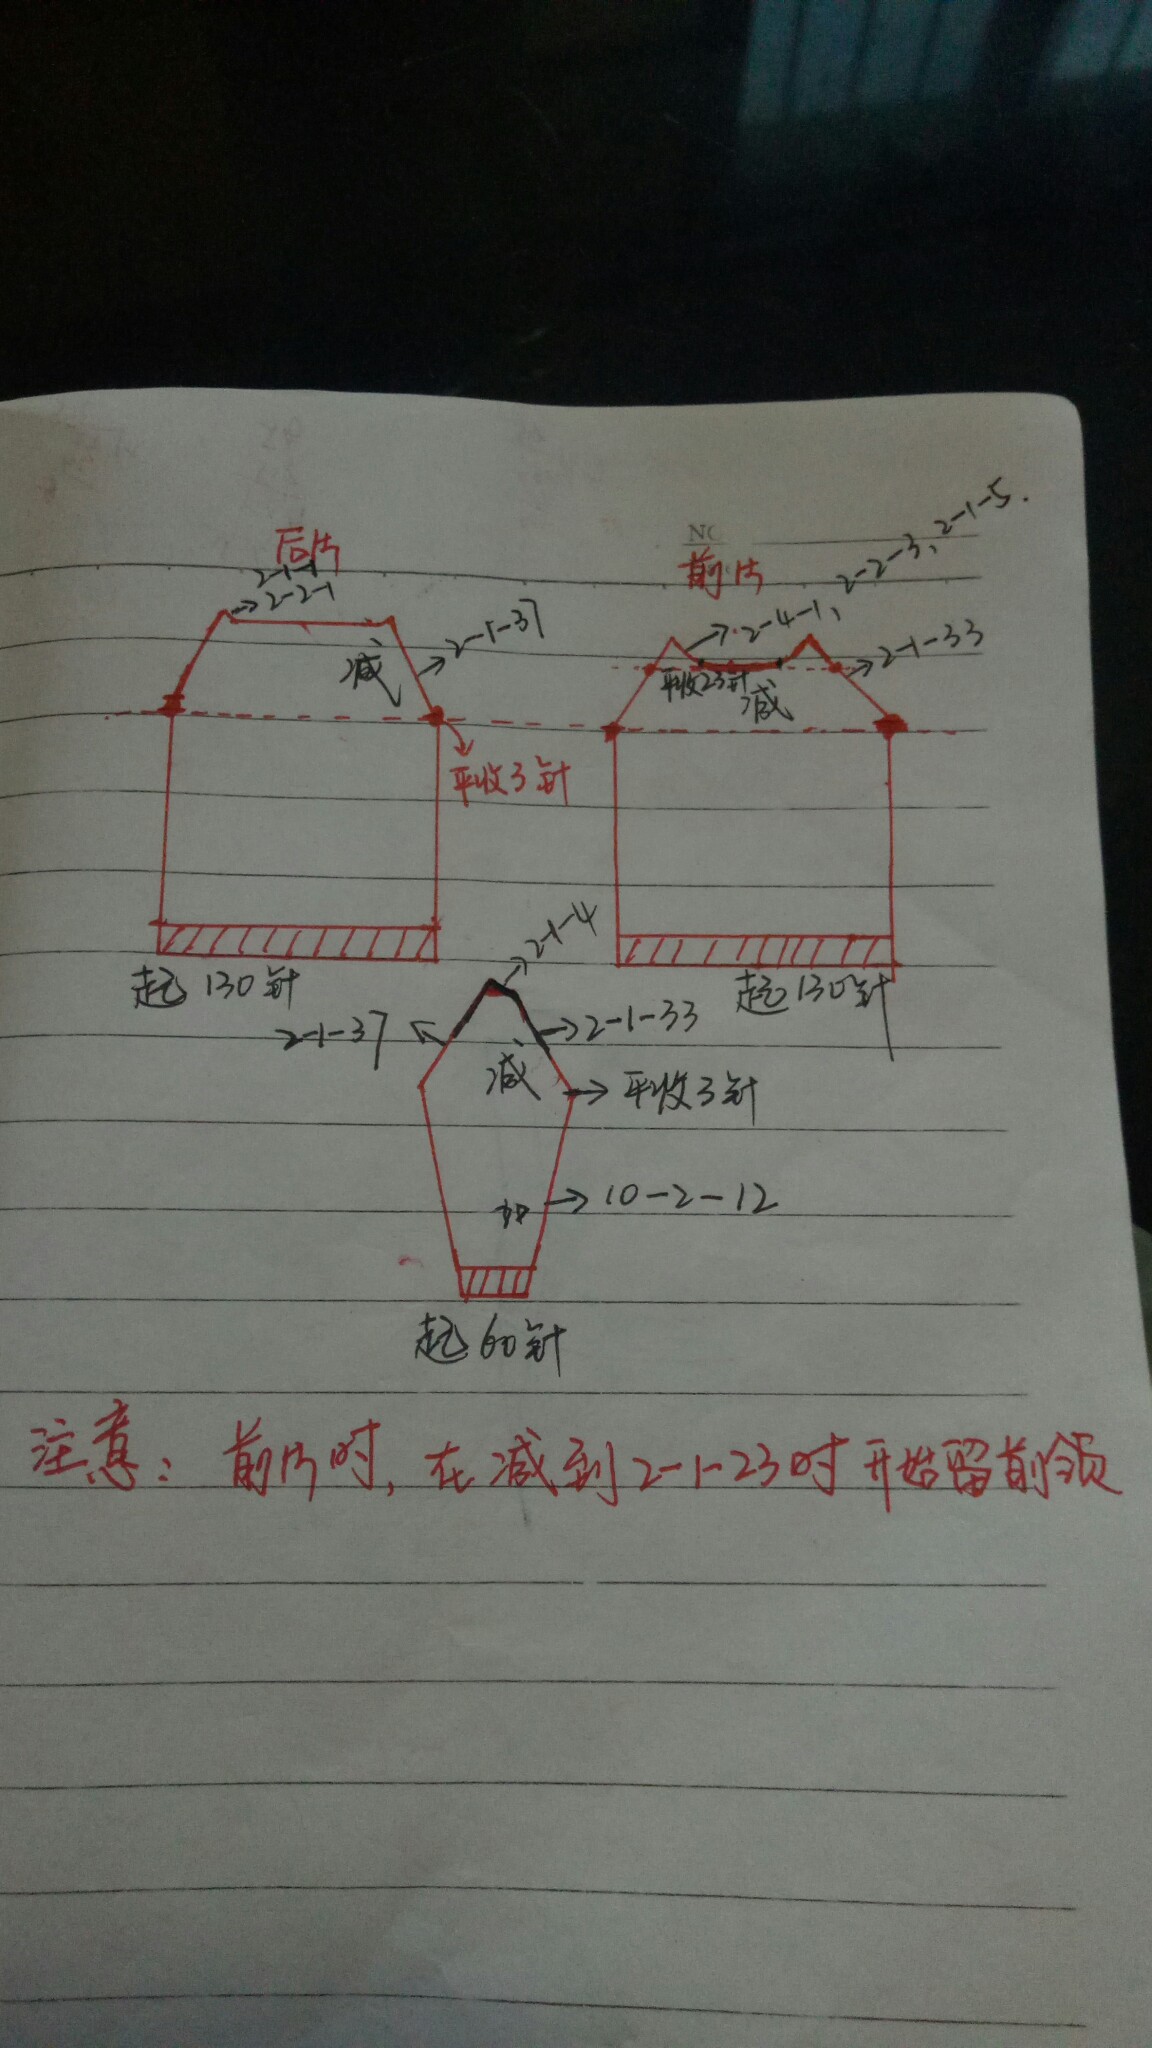 后片
2-1-1
2-2-1
减
2-1-37
平收3针
起130针
NO
前片
2-4-1、2-2-3、2-1-5.
2-1-33
平收23针
减
起130针
2-1-4
2-1-37
2-1-33
减
平收3针
加
10-2-12
起60针
注意：前片时，在减到2-1-23时开始留前领